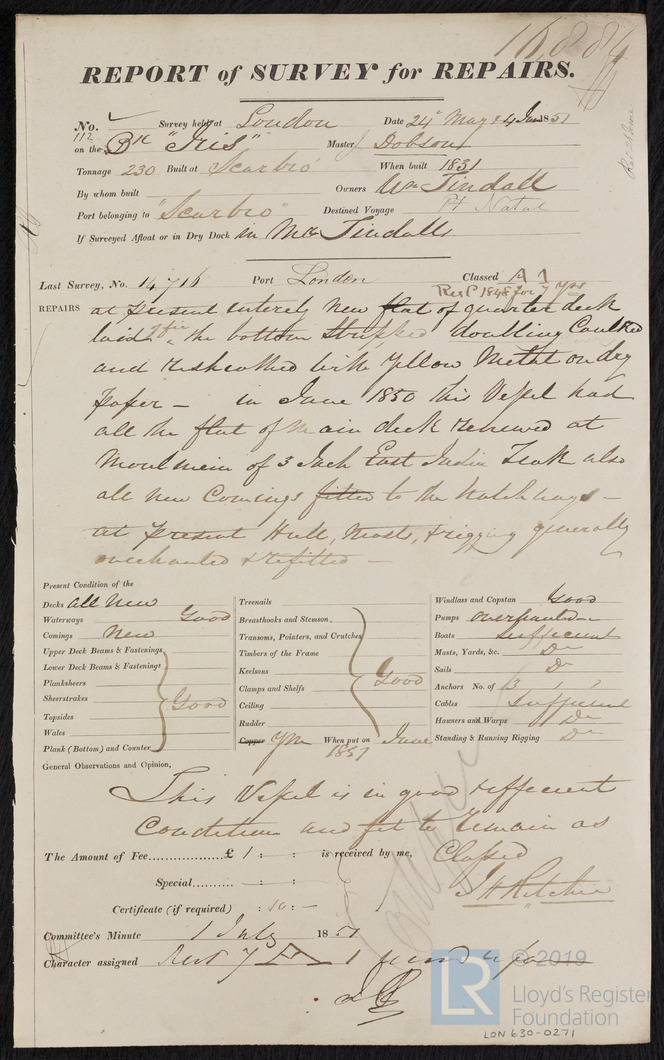 16,884
REPORT of SURVEY for REPAIRS.
No. 112 Survey held at London Date 24 May & 4 June 1851
on the Bk "Iris" Master J Dobson
Tonnage 230 Built at Scarbro' When built 1831
By whom built Owners Wm Tindall
Port belonging to "Scarbro" Destined Voyage Pt Natal
If Surveyed Afloat or in Dry Dock in Mr Tindalls
Last Survey, No. 14716 Port London Classed A 1
Rest 1848 for 7 Yrs
REPAIRS at present entirely new flat of quarter deck
laid the bottom stripped doubling Caulked
and resheathed with Yellow Metal on dry
paper — in June 1850 this Vessel had
all the flat of main deck renewed at
Moulmein of 3 Inch East India Teak also
all new Comings fitted to the hatchways —
at present Hull, Masts, & rigging generally
overhauled & refitted —
Present Condition of the
Decks all New
Waterways Good
Comings New
Upper Deck Beams & Fastenings
Lower Deck Beams & Fastenings
Planksheers
Sheerstrakes Good
Topsides
Wales
Plank (Bottom) and Counter
Treenails
Breasthooks and Stemson
Transoms, Pointers, and Crutches
Timbers of the Frame
Keelsons
Clamps and Shelfs Good
Ceiling
Rudder
Copper YM When put on June 1851
Windlass and Capstan Good
Pumps overhauled
Boats Sufficient
Masts, Yards, &c. Do
Sails Do
Anchors No. of 3, 1, 1
Cables Sufficient
Hawsers and Warps Do
Standing & Running Rigging Do
General Observations and Opinion,
This Vessel is in good & efficient
Condition and fit to remain as
Classed
The Amount of Fee...................£ 1 : - : - is received by me,
Special.......... - : - : -
J H Ritchie
Certificate (if required) : 10 : -
Committee's Minute 1 July 1851
Character assigned
© 2019
LR
Lloyd's Register
Foundation
LON 630-0271